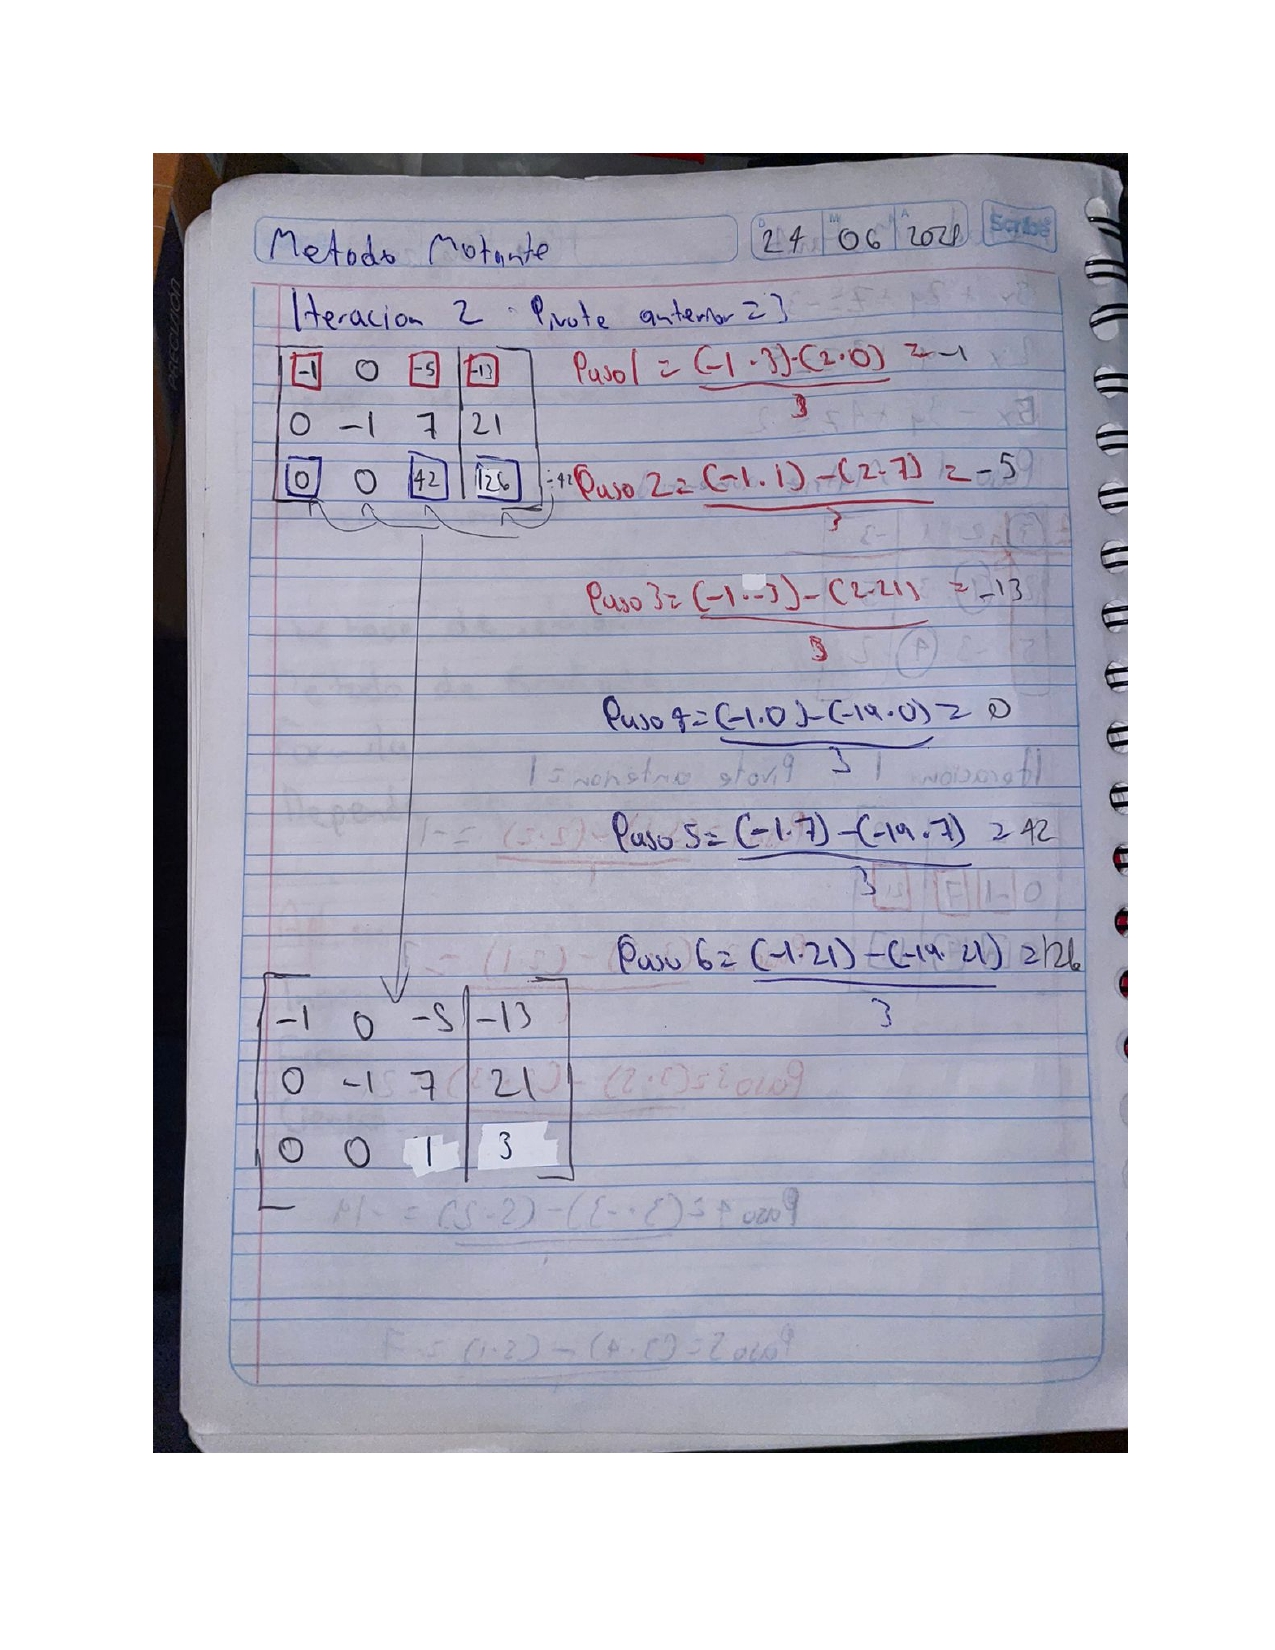 Metodo Motante
24 06 2021
Scribe
PRECISION
Iteracion 2 Pivote anterior = 3
-1 0 -5 | -13
0 -1 7 | 21
0 0 42 | 126 ÷42
Paso 1 = (-1 · 3) - (2 · 0) = -1
3
Paso 2 = (-1 · 1) - (2 · 7) = -5
3
Paso 3 = (-1 · -3) - (2 · 21) = -13
3
Paso 4 = (-1 · 0) - (-19 · 0) = 0
3
Paso 5 = (-1 · 7) - (-19 · 7) = 42
3
Paso 6 = (-1 · 21) - (-19 · 21) = 126
3
-1 0 -5 | -13
0 -1 7 | 21
0 0 1 | 3